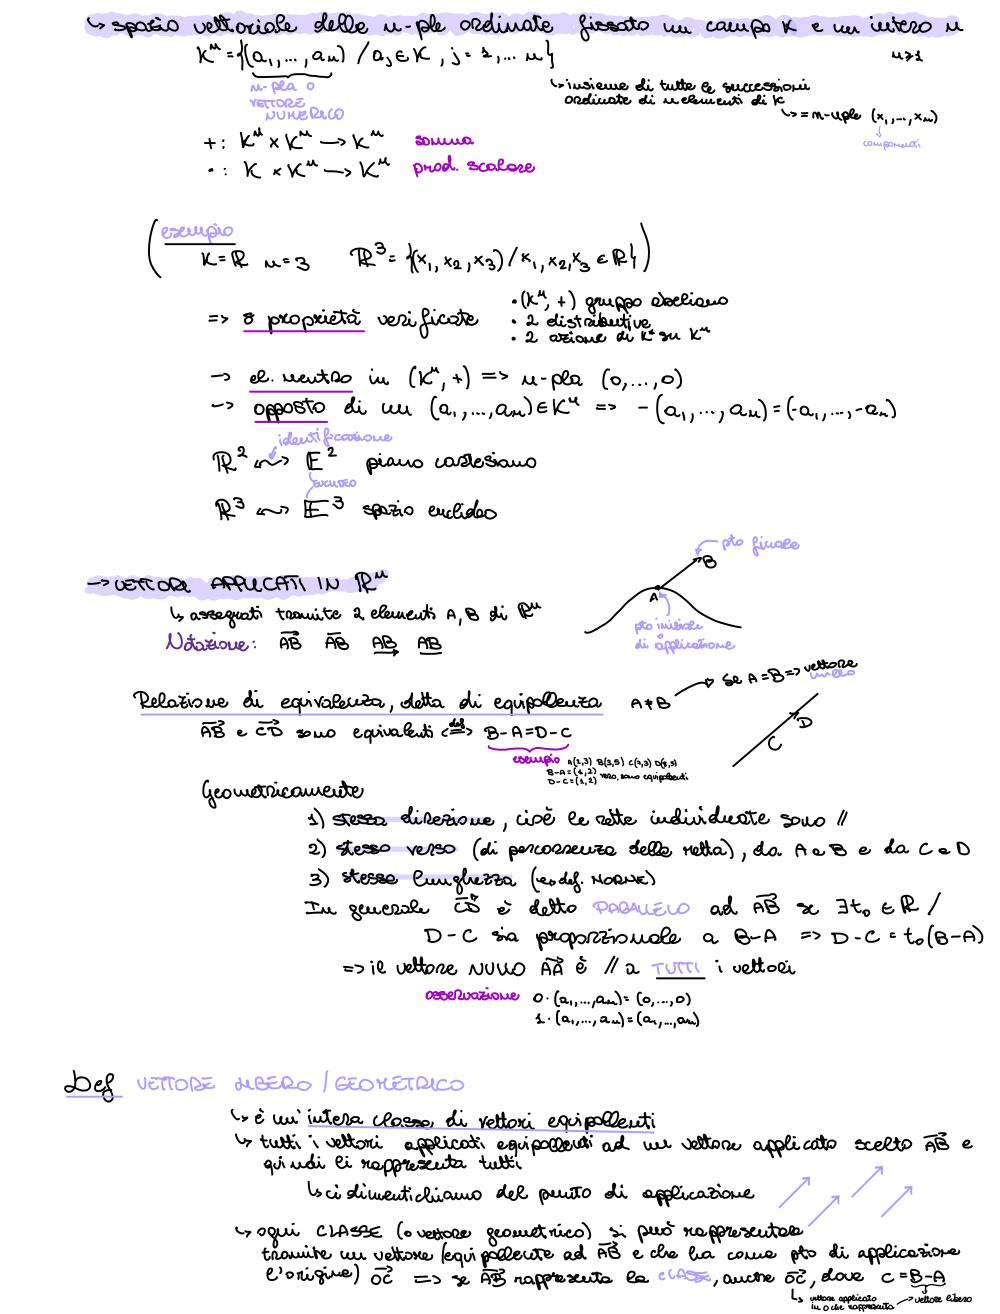 ↳ spazio vettoriale delle n-ple ordinate fissato un campo K e un intero n
n≥1
Kⁿ = {(a₁,...,aₙ) / aj ∈ K, j = 1,... n}
n-pla o
VETTORE
NUMERICO
↳ insieme di tutte le successioni
ordinate di n elementi di K
↳ = n-uple (x₁,...,xₙ)
componenti
+ : Kⁿ × Kⁿ → Kⁿ somma
• : K × Kⁿ → Kⁿ prod. scalare
esempio
K = ℝ n = 3 ℝ³ = {(x₁, x₂, x₃) / x₁, x₂, x₃ ∈ ℝ}
=> 8 proprietà verificate
• (Kⁿ, +) gruppo abeliano
• 2 distributive
• 2 azione di K* su Kⁿ
→ el. neutro in (Kⁿ, +) => n-pla (0,...,0)
→ opposto di un (a₁,...,aₙ) ∈ Kⁿ => -(a₁,...,aₙ) = (-a₁,...,-aₙ)
identificazione
ℝ² ↭ E² piano cartesiano
EUCLIDEO
ℝ³ ↭ E³ spazio euclideo
→ VETTORI APPLICATI IN ℝⁿ
↳ assegnati tramite 2 elementi A, B di ℝⁿ
Notazione: AB AB AB AB
pto finale
B
A
pto iniziale
di applicazione
Relazione di equivalenza, detta di equipollenza A ≠ B → Se A = B => vettore nullo
AB e CD sono equivalenti <=>def B - A = D - C
C D
esempio A(2,3) B(3,5) C(2,3) D(3,5)
B - A = (1,2) vero, sono equipollenti
D - C = (1,2)
Geometricamente
1) stessa direzione, cioè le rette individuate sono //
2) stesso verso (di percorrenza della retta), da A a B e da C a D
3) stessa lunghezza (es def. NORME)
In generale CD è detto PARALLELO ad AB se ∃ t₀ ∈ ℝ /
D - C sia proporzionale a B - A => D - C = t₀(B - A)
=> il vettore NULLO AA è // a TUTTI i vettori
osservazione 0·(a₁,...,aₙ) = (0,...,0)
1·(a₁,...,aₙ) = (a₁,...,aₙ)
Def VETTORE LIBERO / GEOMETRICO
↳ è un' intera classe di vettori equipollenti
↳ tutti i vettori applicati equipollenti ad un vettore applicato scelto AB e
quindi li rappresenta tutti
↳ ci dimentichiamo del punto di applicazione
↳ ogni CLASSE (o vettore geometrico) si può rappresentare
tramite un vettore (equipollente ad AB e che ha come pto di applicazione
l'origine) OC => se AB rappresenta la CLASSE, anche OC, dove C = B - A
↳ vettore applicato
in O che rappresenta → vettore libero